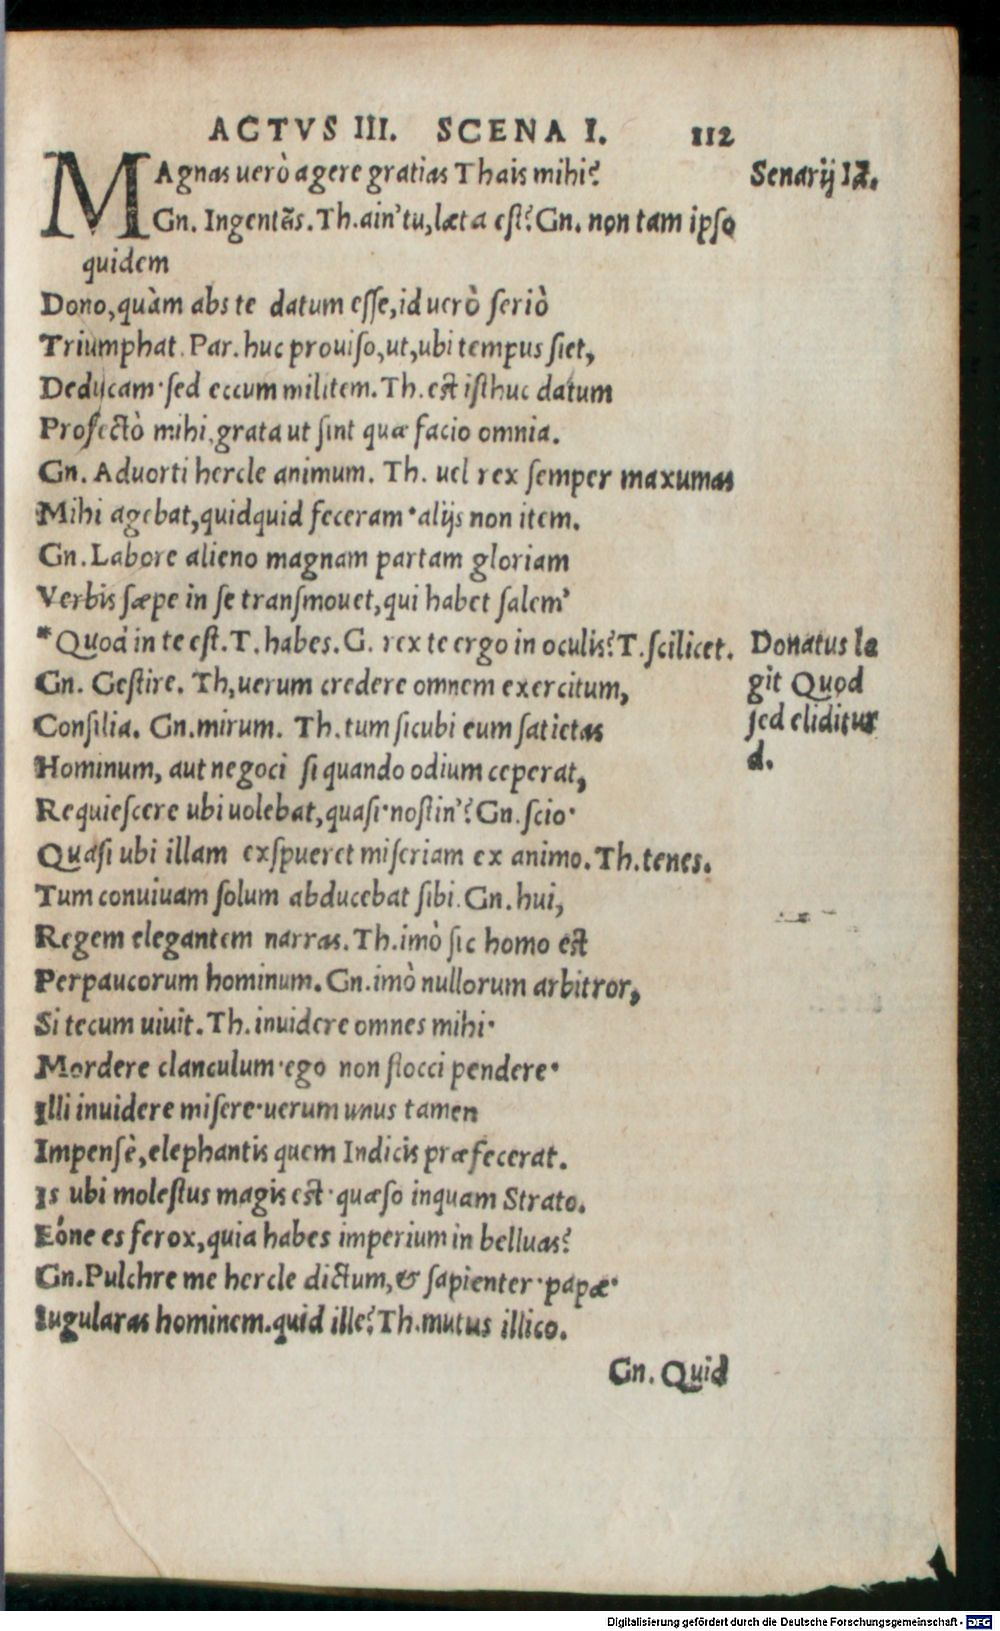 ACTVS III. SCENA I. 112
MAgnas uerò agere gratias Thais mihi?
Senarij Iā.
Gn. Ingentēs. Th. ain' tu, læta est? Gn. non tam ipso
quidem
Dono, quàm abs te datum esse, id uerò seriò
Triumphat. Par. huc prouiso, ut, ubi tempus siet,
Dedycam· sed eccum militem. Th. est isthuc datum
Profectò mihi, grata ut sint quæ facio omnia.
Gn. Aduorti hercle animum. Th. uel rex semper maxumas
Mihi agebat, quidquid feceram· alijs non item.
Gn. Labore alieno magnam partam gloriam
Verbis sæpe in se transmouet, qui habet salem'
*Quod in te est. T. habes. G. rex te ergo in oculis? T. scilicet.
Gn. Gestire. Th, uerum credere omnem exercitum,
Consilia. Gn. mirum. Th. tum sicubi eum satietas
Hominum, aut negoci si quando odium ceperat,
Requiescere ubi uolebat, quasi· nostin'? Gn. scio·
Quasi ubi illam exspueret miseriam ex animo. Th. tenes.
Tum conuiuam solum abducebat sibi. Gn. hui,
Regem elegantem narras. Th. imò sic homo est
Perpaucorum hominum. Gn. imò nullorum arbitror,
Si tecum uiuit. Th. inuidere omnes mihi·
Mordere clanculum· ego non flocci pendere·
Illi inuidere misere· uerum unus tamen
Impensè, elephantis quem Indicis præfecerat.
Is ubi molestus magis est· quæso inquam Strato.
Eóne es ferox, quia habes imperium in belluas?
Gn. Pulchre me hercle dictum, & sapienter· papæ·
Iugularas hominem. quid ille? Th. mutus illico.
Donatus le
git Quod
sed eliditur
d.
Gn. Quid
Digitalisierung gefördert durch die Deutsche Forschungsgemeinschaft - DFG